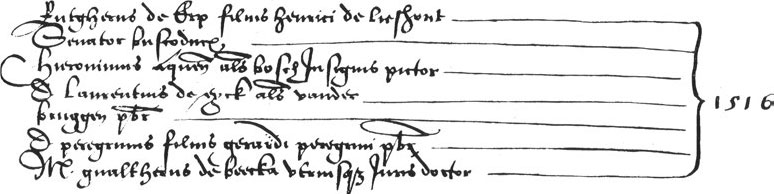 Rutgherus de Erp filius henrici de lieshout
Senator buscoducen
Hieronimus aquen als bosch Insignis pictor
D laurentius de eyck als vander
bruggen pbr
D peregrinus filius gerardi peregrini pbr
M. gualtherus de beecka utriusqz Juris doctor
1516